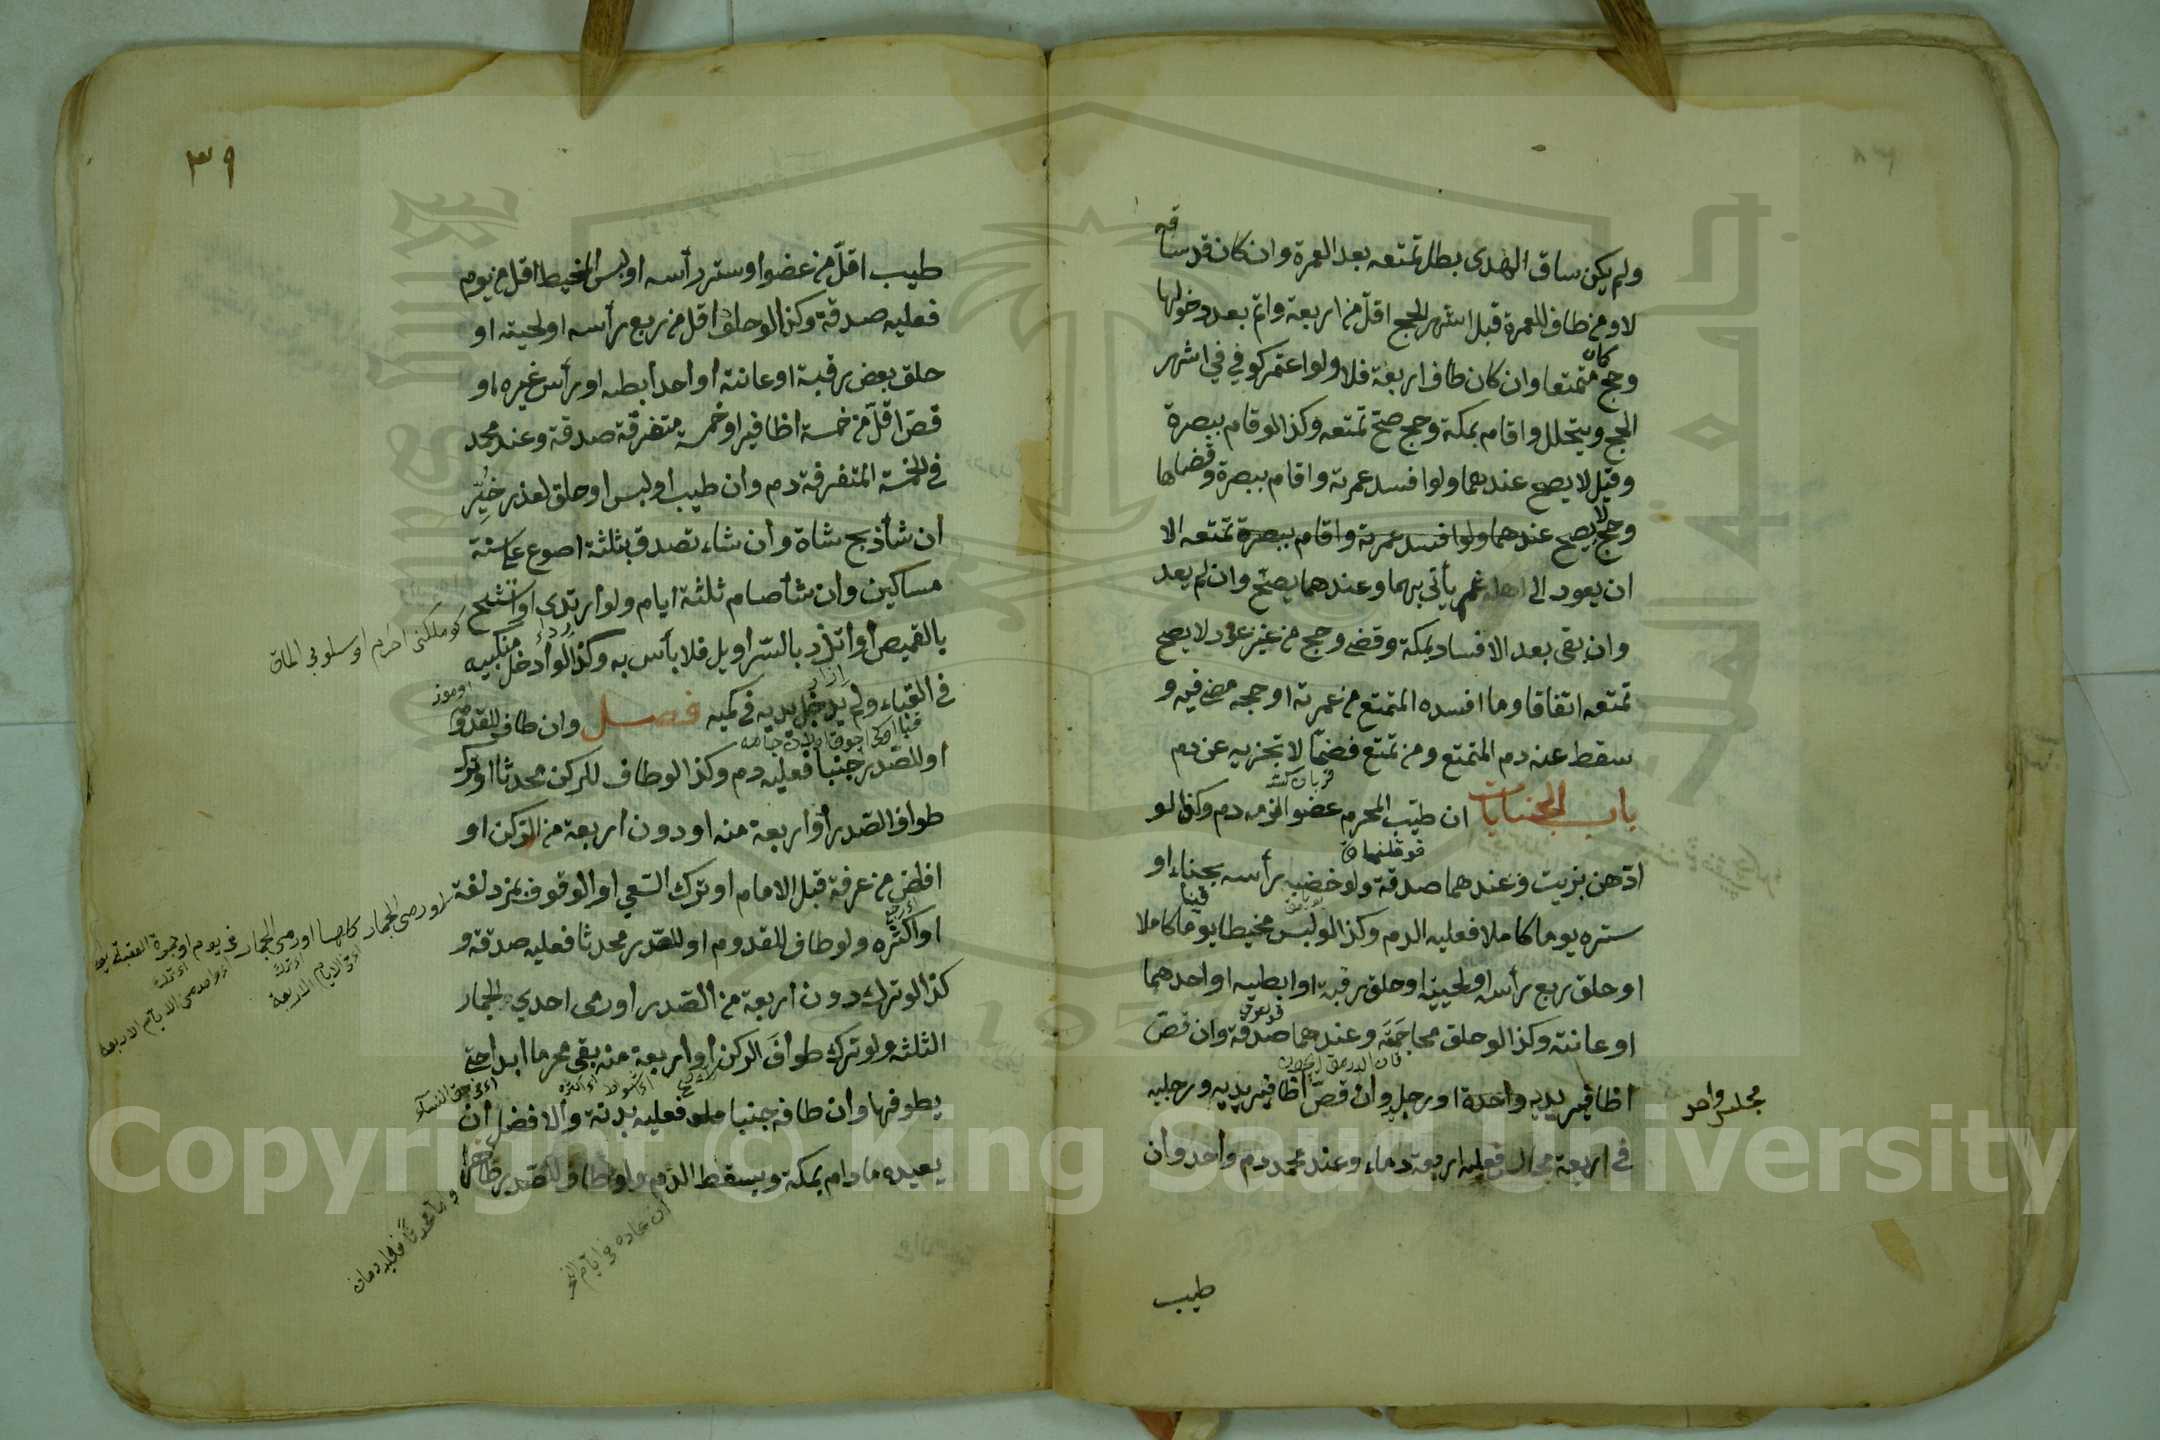 ولم يكن ساق الهدى بطل تمتعه بعد العمرة وان كان قد ساقه
لا ومن طاف للعمرة قبل اشهر الحج اقلّ من اربعة واتم بعد دخولها
وحج كان متمتعا وان كان طاف اربعة فلا ولو اعتمر كوفي في اشهر
الحج ويتحلل واقام بمكة وحج صح تمتعه وكذا لو قام ببصرة
وقيل لا يصح عندهما ولو افسد عمرته واقام ببصرة وقضاها
وحج لا يصح عندهما ولوا فسد عمرته واقام ببصرة تمتعه الا
ان يعود الى اهله ثم يأتي بهما وعندهما يصح وان لم يعد
وان بقى بعد الافساد بمكة وقضى وحج من غير عود لا يصح
تمتعه اتفاقا وما افسده المتمتع من عمرته او حجه مضى فيه و
سقط عنه دم المتمتع ومن تمتع فضحّا لا تجزيه عن دم
باب الجنايات ان طيّب المحرم عضوا لزمه دم وكذا لو
ادّهن بزيت وعندهما صدقة ولو خضب رأسه بحناء او
ستره يوما كاملا فعليه الدم وكذا لو لبس مخيطا يوما كاملا
او حلق ربع رأسه او لحيته او حلق رقبة او ابطيه او احدهما
او عانته وكذا لو حلق محاجمه وعندهما صدقة وان قصّ
اظافير يديه واحدة او رجل وان قصّ اظافير يديه ورجليه
مجلس واحد
في اربعة مجالس فعليه اربعة دماء وعند محمد دم واحد وان
طيب
٣٩
طيب اقلّ من عضو او ستر رأسه او لبس المخيط اقل من يوم
فعليه صدقة وكذا لو حلق اقل من ربع رأسه او لحيته او
حلق بعض رقبة او عانته أو أحد أبطه او رأس غيره او
قصّ اقلّ من خمسة اظافير او خمسة متفرقة صدقة وعند محمد
في الخمسة المتفرقة دم وان طيب او لبس او حلق لعذر خيّر
ان شأ ذبح شاة وأن شاء تصدق بثلثة اصوع على ستة
مساكين وأن شأ صام ثلثة ايام ولو أرتدى او اتشح
بالقميص أو أتزر بالسّراويل فلا بأس به وكذا لو أدخل منكبيه
في القباء ولم يدخل يديه في كميه فصل وان طاف للقدوم
او للصّدر جنبا فعليه دم وكذا لو طاف للركن محدثا او ترك
طواف الصّدر أو اربعة منه او دون اربعة من الرّكن او
افاض من عرفة قبل الامام او ترك السّعي او الوقوف بمزدلفة
او رمى الجمار كلها او رمى الجمار في يوم او جمرة العقبة
او اكثره ولو طاف للقدوم او للصّدر محدثا فعليه صدقة و
كذا لو ترك دون اربعة من الصّدر او رمى احدي الجمار
الثلثه ولو ترك طواف الركن أو أربعة منه بقى محرما ابدا حتى
يطوفها وأن طافه جنبا فعليه بدنة والافضل أن
يعيده مادام بمكة ويسقط الدّم ولو طاف للصّدر طاهرا
ان عاده في ايام النحر